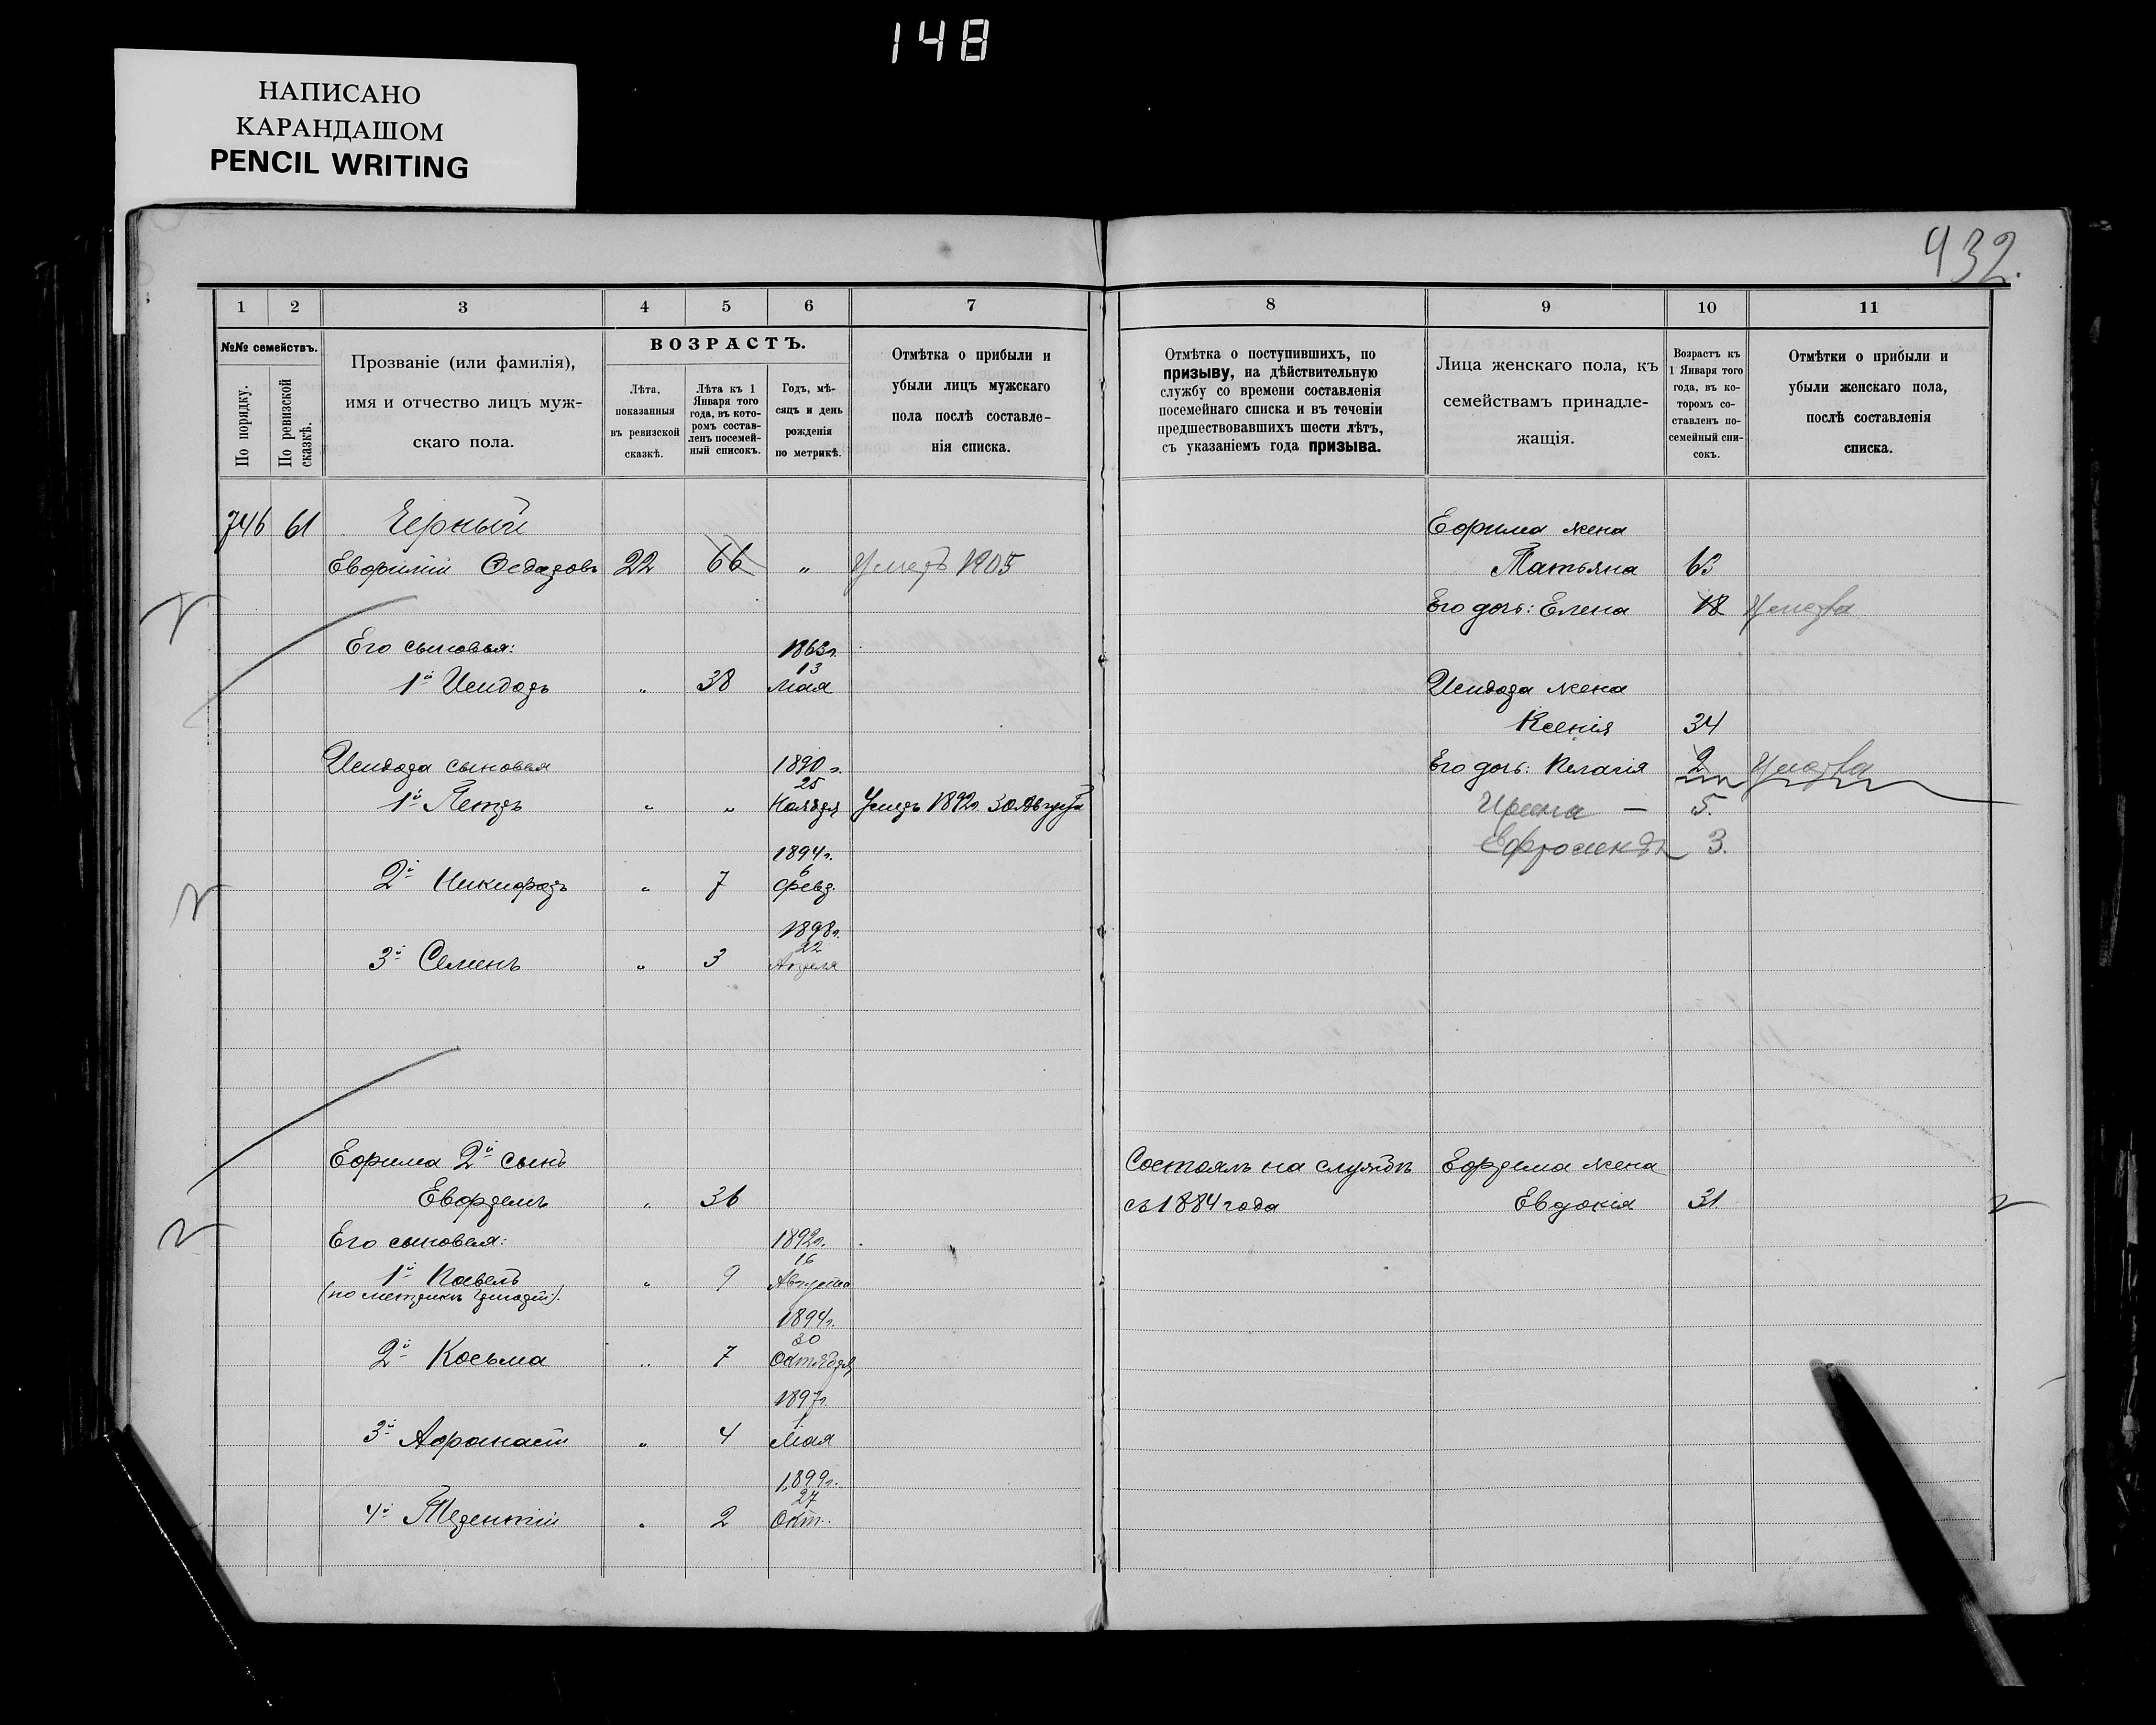 148
НАПИСАНО
КАРАНДАШОМ
PENCIL WRITING
432.
1 2 3 4 5 6 7
№№ семействъ.
По порядку.
По ревизской сказкѣ.
Прозваніе (или фамилія),
имя и отчество лицъ муж-
скаго пола.
ВОЗРАСТЪ.
Лѣта,
показанныя
въ ревизской
сказкѣ.
Лѣта къ 1
Января того
года, въ кото-
ромъ состав-
ленъ посемей-
ный списокъ.
Годъ, мѣ-
сяцъ и день
рожденія
по метрикѣ.
Отмѣтка о прибыли и
убыли лицъ мужскаго
пола послѣ составле-
нія списка.
746 61 Черный
Евфимій Федоровъ 22 66 „ Умеръ 1905
Его сыновья: 1863г.
13
1й Исидоръ „ 38 Мая
Исидора сыновья 1890г.
25
1й Петръ „ „ Ноября Умеръ 1892г. 30 Августа
1894г.
6
2й Никифоръ „ 7 Февр.
1898г.
22
3й Семенъ „ 3 Апреля
Ефима 2й сынъ
Евфремъ „ 36
Его сыновья: 1892г.
16
1й Павелъ „ 9 Августа
(по метрикѣ Григорій).
1894г.
30
2й Косьма „ 7 Октября
1897г.
1.
3й Афанасій „ 4 Мая
1899г.
27
4й Терентій „ 2 Окт.
8 9 10 11
Отмѣтка о поступившихъ, по
призыву, на дѣйствительную
службу со времени составленія
посемейнаго списка и въ теченіи
предшествовавшихъ шести лѣтъ,
съ указаніемъ года призыва.
Лица женскаго пола, къ
семействамъ принадле-
жащія.
Возрастъ къ
1 Января того
года, въ ко-
торомъ со-
ставленъ по-
семейный спи-
сокъ.
Отмѣтки о прибыли и
убыли женскаго пола,
послѣ составленія
списка.
Ефима жена
Татьяна 63
Его дочь: Елена 18 Умерла
Исидора жена
Ксенія 34
Его дочь: Пелагія 2 Умерла
Ирина — 5.
3.
Состоялъ на службѣ Ефрема жена
съ 1884 года Евдокія 31.